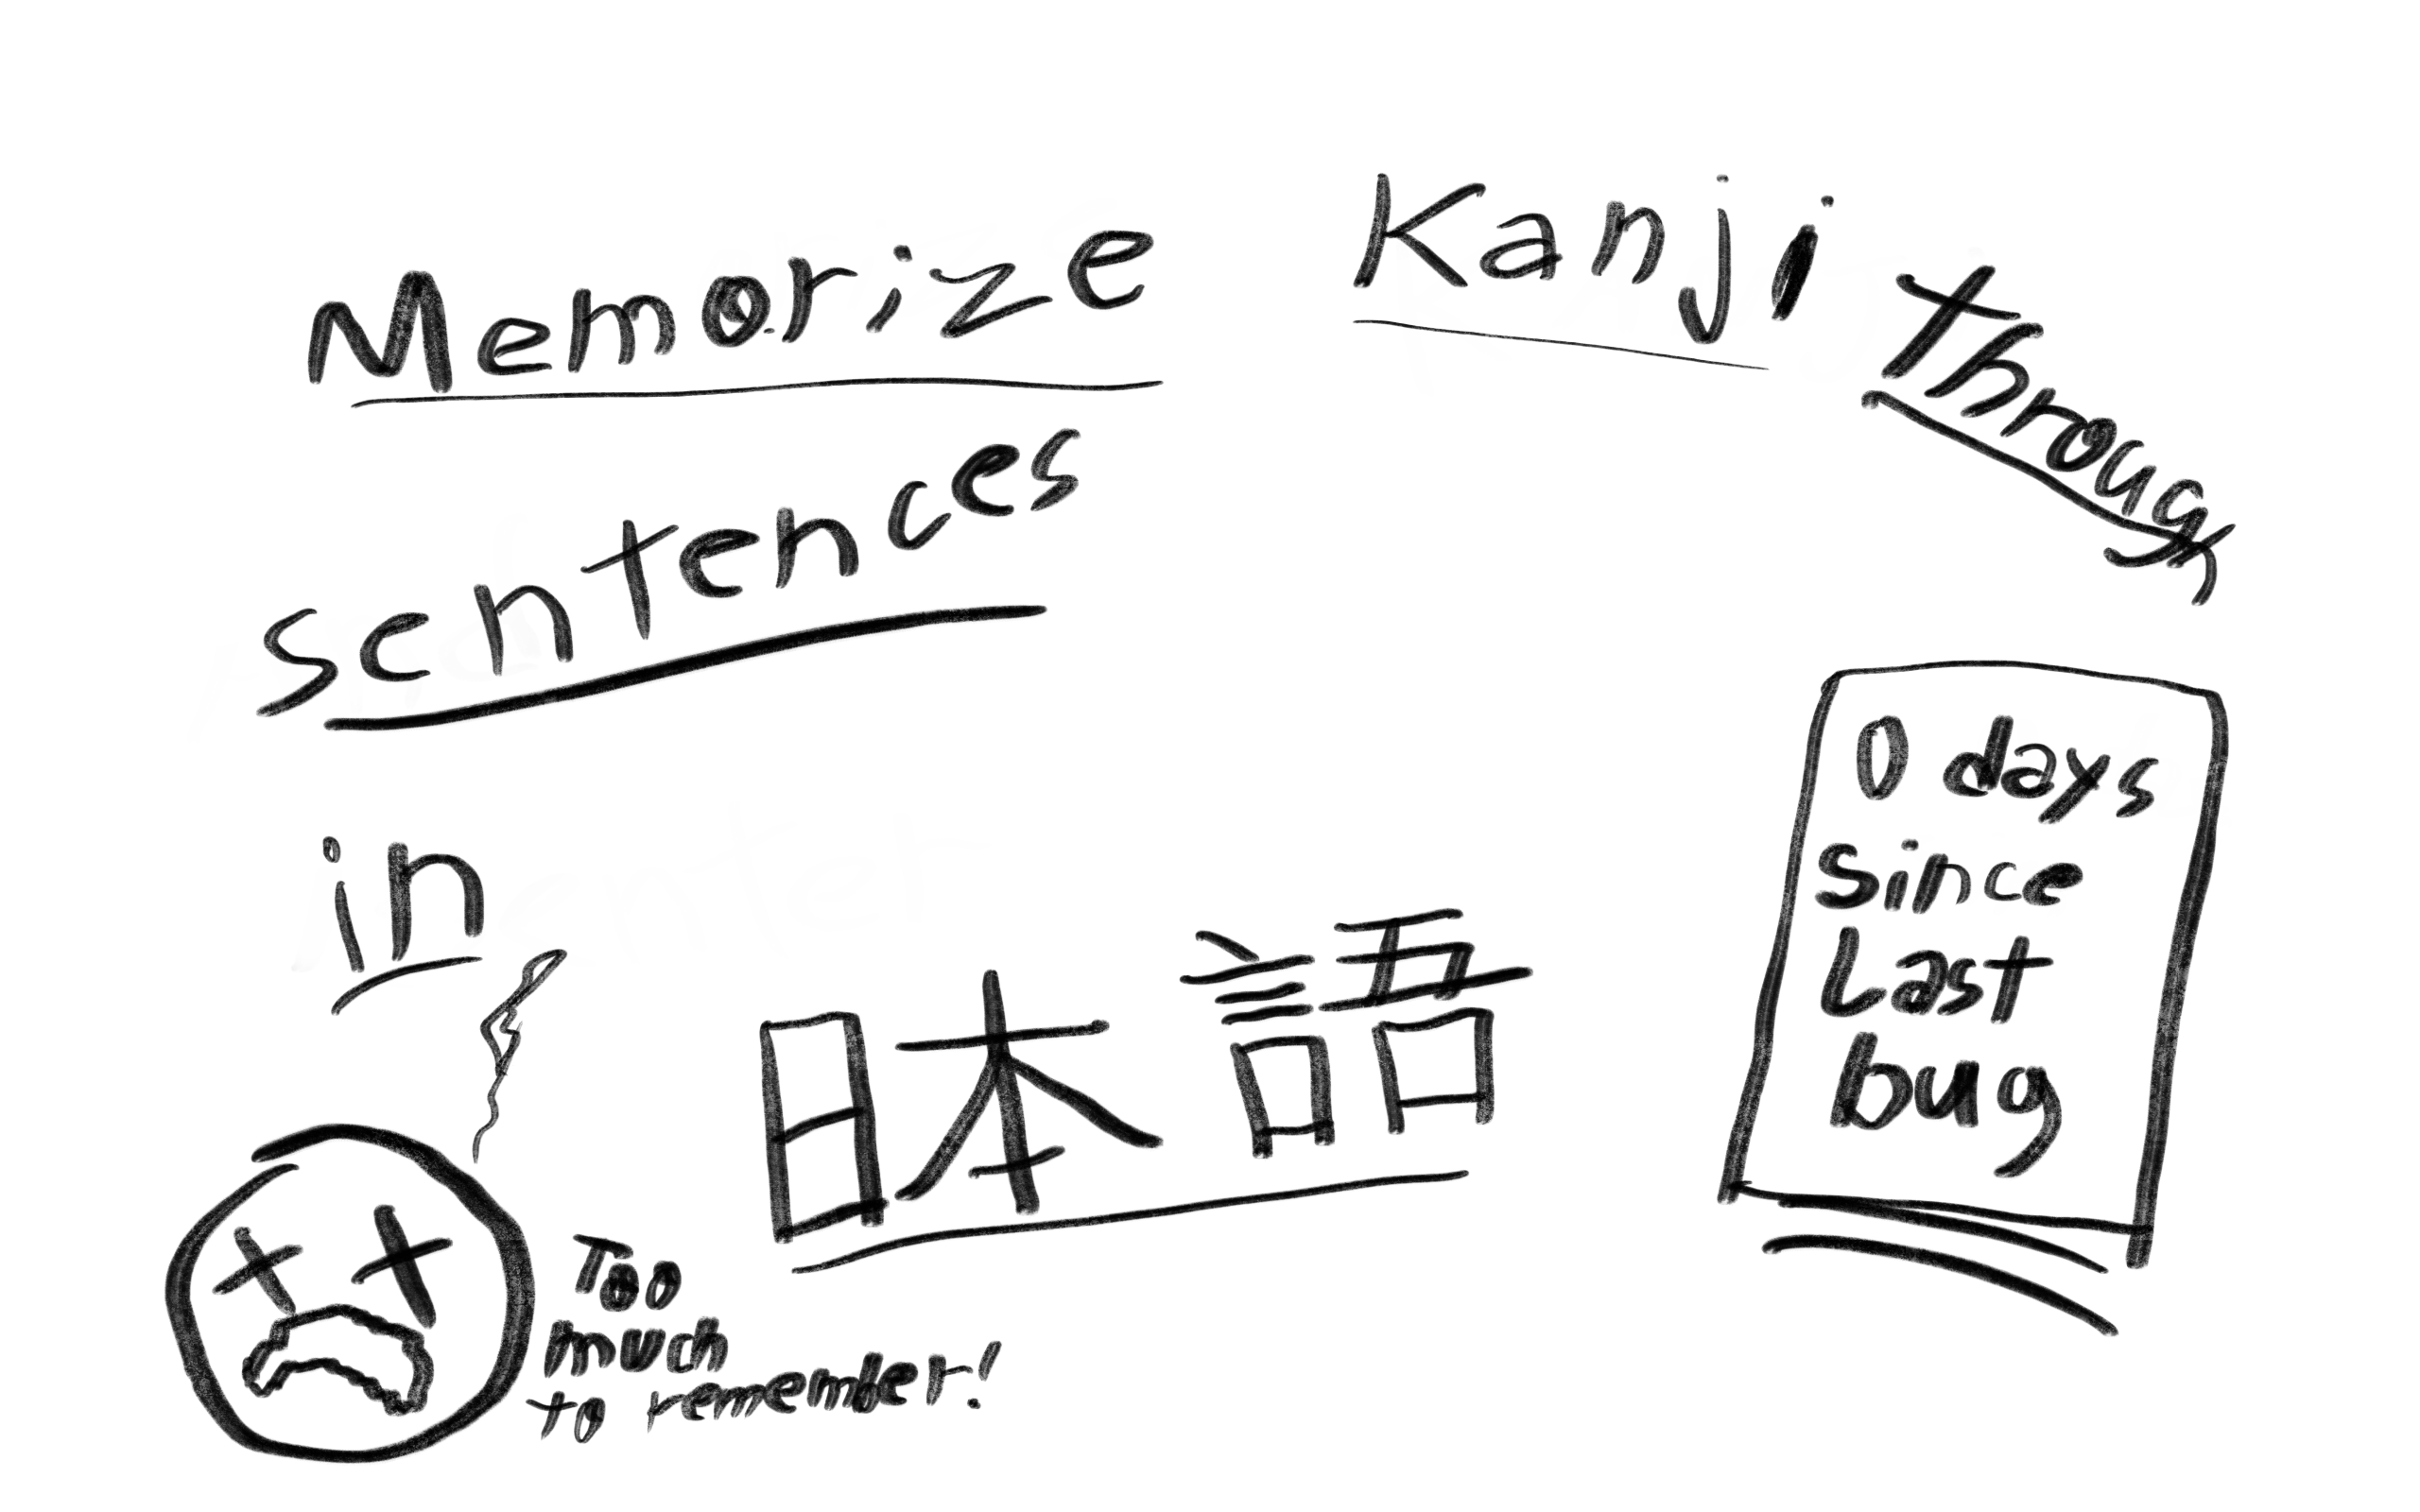 Memorize Kanji through
sentences
in
日本語
0 days
since
Last
bug
Too
much
to remember!